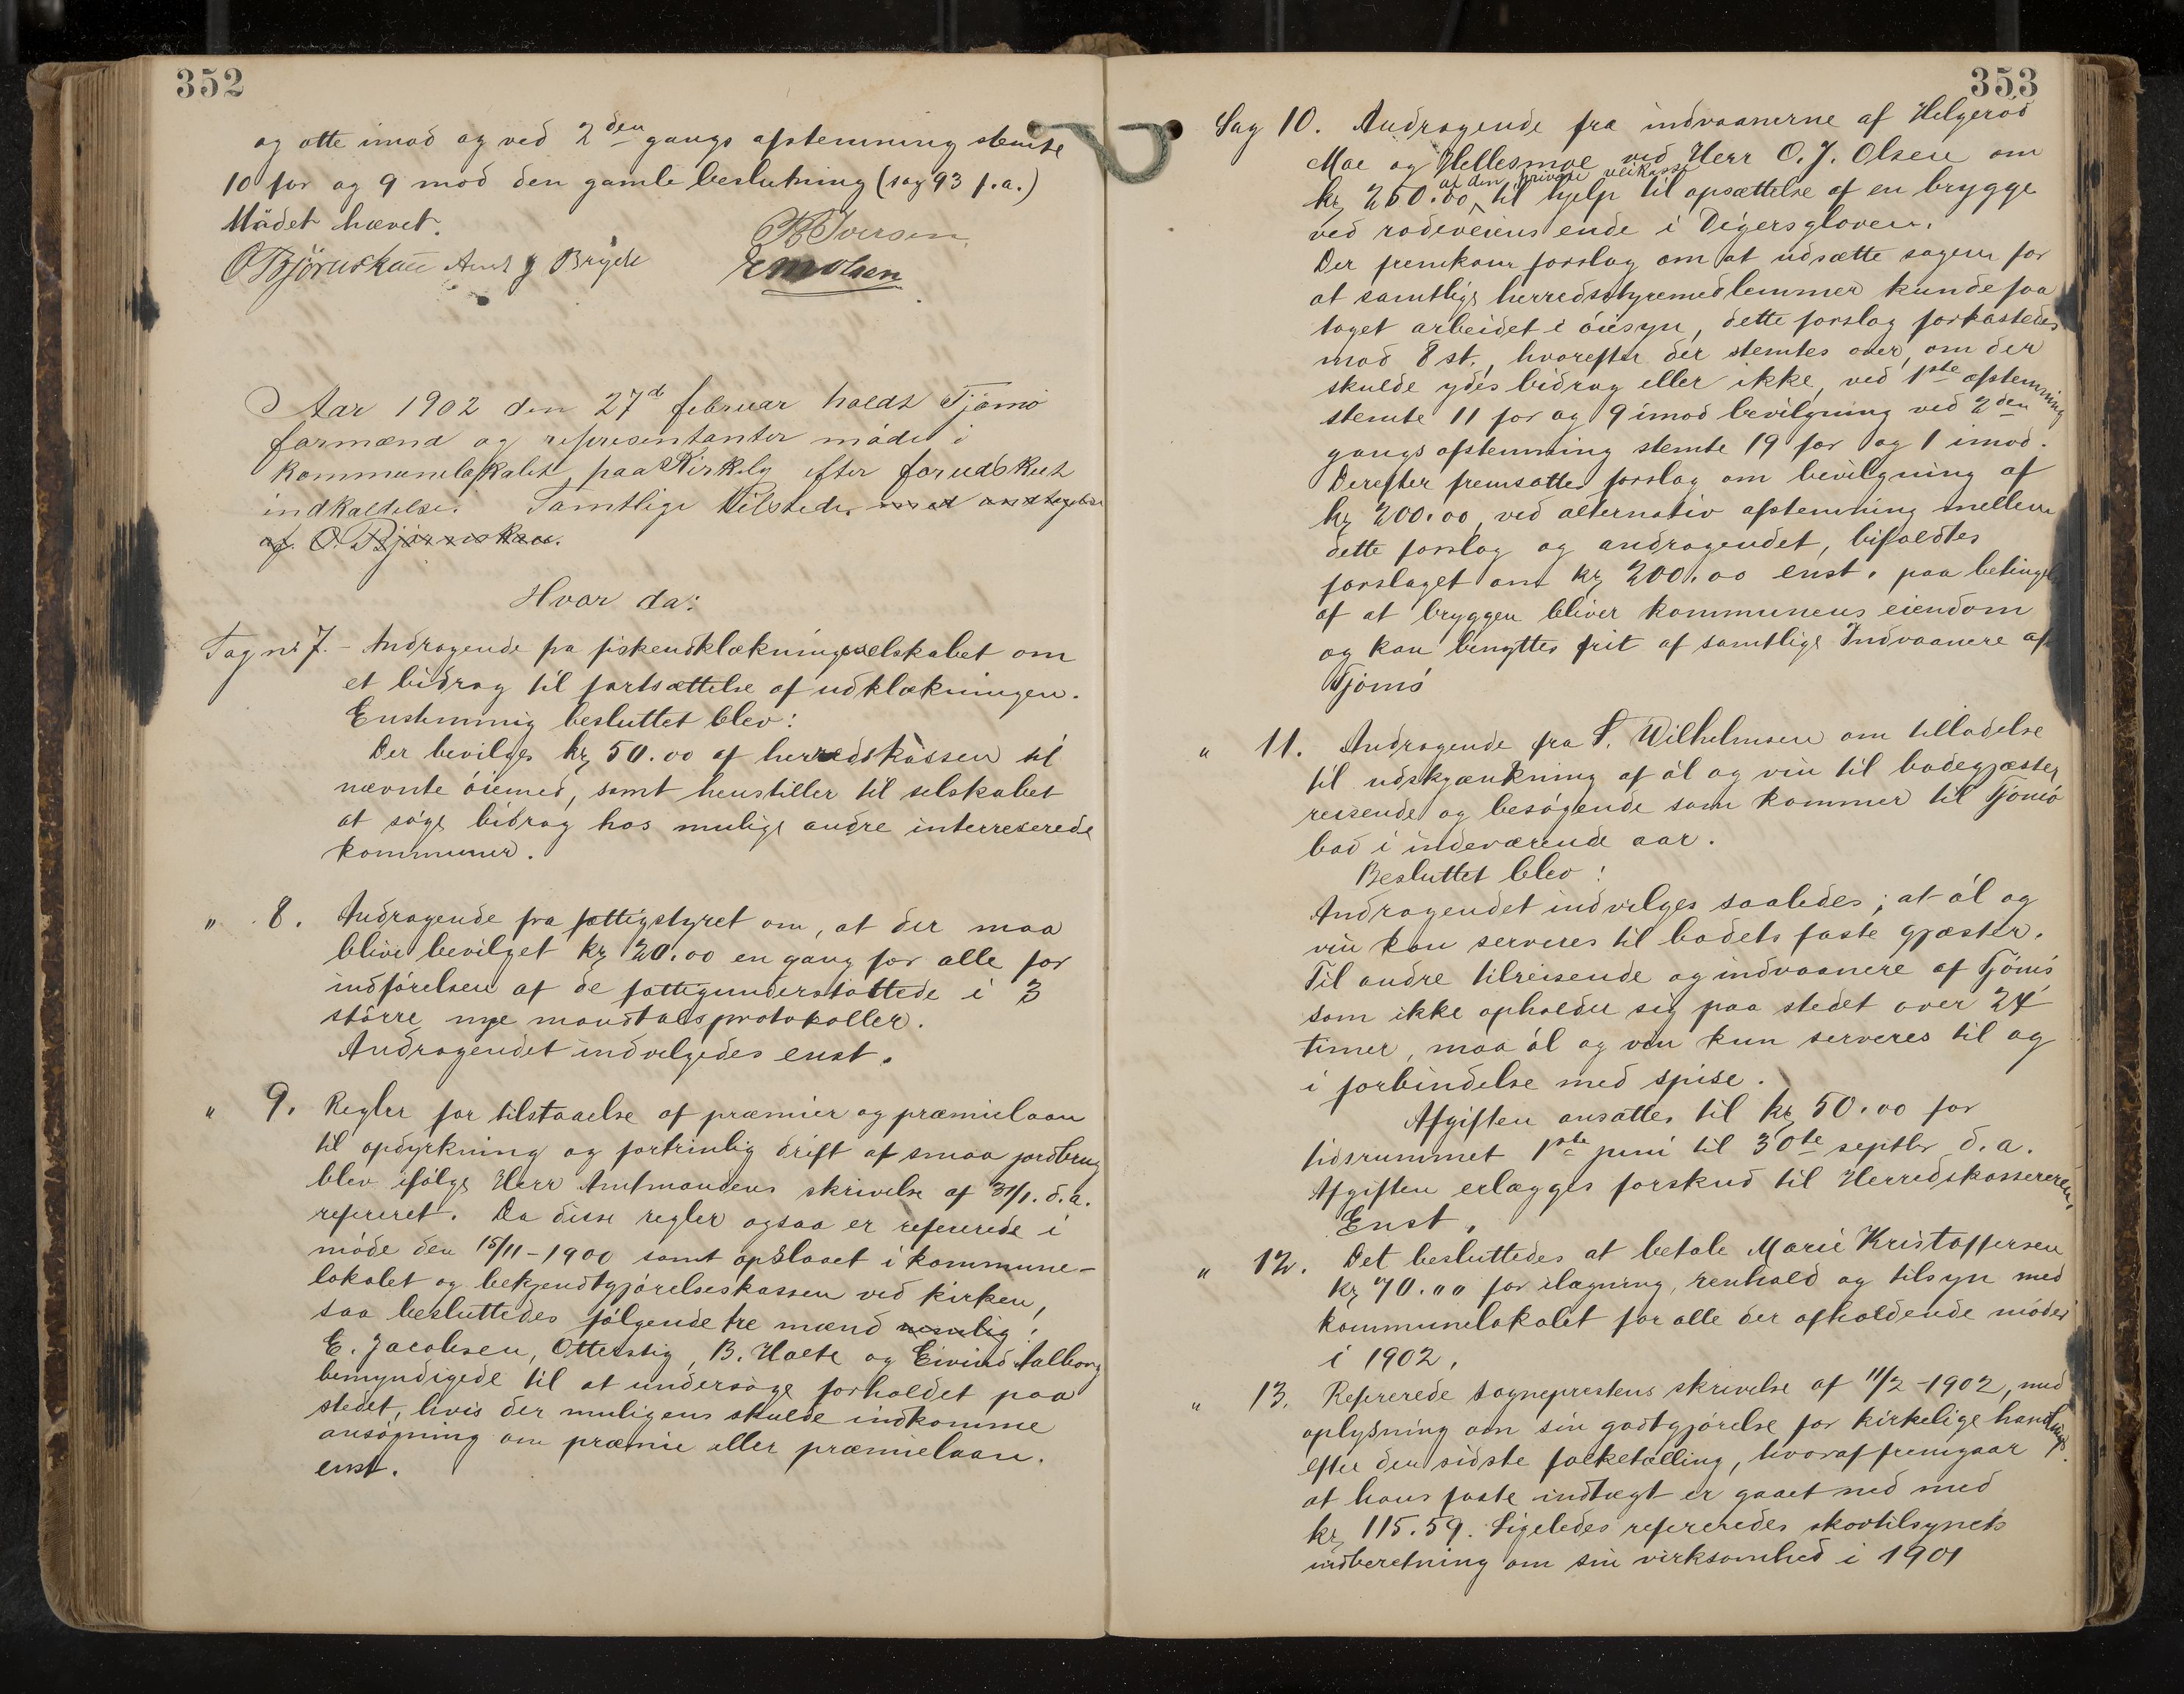 352
og otte imod og ved 2den gangs afstemning stemte
10 for og 9 mod den gamle beslutning (sag 93 f.a.)
Mødet hævet.
O Bjørnskau
Iversen
E M Olsen
Aar 1902 den 27d februar holdt Tjømø
formænd og representanter møde i
kommunelokalet paa Kirkely efter forudskeet
indkaldelse. Samtlige tilstede. med undtagelse
af O. Bjørnskau.
Hvor da:
Sag nr 7. - Andragende fra fiskeudklækningsselskabet om
et bidrag til fortsættelse af udklækningen.
Enstemmig besluttet blev:
Der bevilges kr 50.00 af herredskassen til
nævnte øiemed, samt henstiller til selskabet
at søge bidrag hos mulige andre interreserede
kommuner.
" 8. Andragende fra fattigstyret om, at der maa
blive bevilget kr 20.00 en gang for alle for
indførelsen af de fattigunderstøttede i 3
større nye mandtalsprotokoller.
Andragendet indvilgedes enst.
" 9. Regler for tilstaaelse af præmier og præmielaan
til opdyrkning og fortrinlig drift af smaa jordbrug
blev ifølge Herr Amtmandens skrivelse af 31/1. d.a.
refereret. Da disse regler ogsaa er refererede i
møde den 15/11-1900 samt opslaaet i kommune-
lokalet og bekjendtgjørelseskassen ved kirken,
saa besluttedes følgende tre mænd nemlig:
E. Jacobsen, Otterstig, B. Holte og Eivind Aalborg
bemyndigede til at undersøge forholdet paa
stedet, hvis der muligens skulde indkomme
ansøgning om præmie eller præmielaan.
enst.
353
Sag 10. Andragende fra indvaanerne af Helgerød
Moe og Hellesmoe ved Herr O. J. Olsen om
af den private veikasse
kr 250.00 til hjelp til opsættelse af en brygge
ved rodeveiens ende i Digersgloven.
Der fremkom forslag om at udsætte sagen for
at samtlige herredsstyremedlemmer kunde faa
taget arbeidet i øiesyn, dette forslag forkastedes
mod 8 st., hvorefter der stemtes over, om der
skulde ydes bidrag eller ikke, ved 1ste afstemning
stemte 11 for og 9 imod bevilgning ved 2den
gangs afstemning stemte 19 for og 1 imod.
Derefter fremsattes forslag om bevilgning af
kr 200.00, ved alternativ afstemning mellem
dette forslag og andragendet, bifaldtes
forslaget om kr 200.00 enst. paa betingelse
af at bryggen bliver kommunens eiendom
og kan benyttes frit af samtlige Indvaanere af
Tjømø
" 11. Andragende fra S. Wilhelmsen om tilladelse
til udskjænkning af øl og vin til badegjæster
reisende og besøgende som kommer til Tjømø
bad i indeværende aar.
Besluttet blev:
Andragendet indvilges saaledes; at øl og
vin kan serveres til badets faste gjæster.
Til andre tilreisende og indvaanere af Tjømø
som ikke opholder sig paa stedet over 24
timer, maa øl og vin kun serveres til og
i forbindelse med spise.
Afgiften ansættes til kr 50.00 for
tidsrummet 1ste juni til 30te septbr d.a.
Afgiften erlægges forskud til Herredskassereren,
Enst.
" 12. Det besluttedes at betale Marie Kristoffersen
kr 70.00 for ilægning, renhold og tilsyn med
kommunelokalet for alle der afholdende møder
i 1902.
" 13. Refererede sogneprestens skrivelse af 11/2-1902, med
oplysning om sin godtgjørelse for kirkelige handlinger
efter den sidste folketælling, hvoraf fremgaar
at hans faste indtægt er gaaet ned med
kr 115.59. Ligeledes refereredes skovtilsynets
indberetning om sin virksomhed i 1901